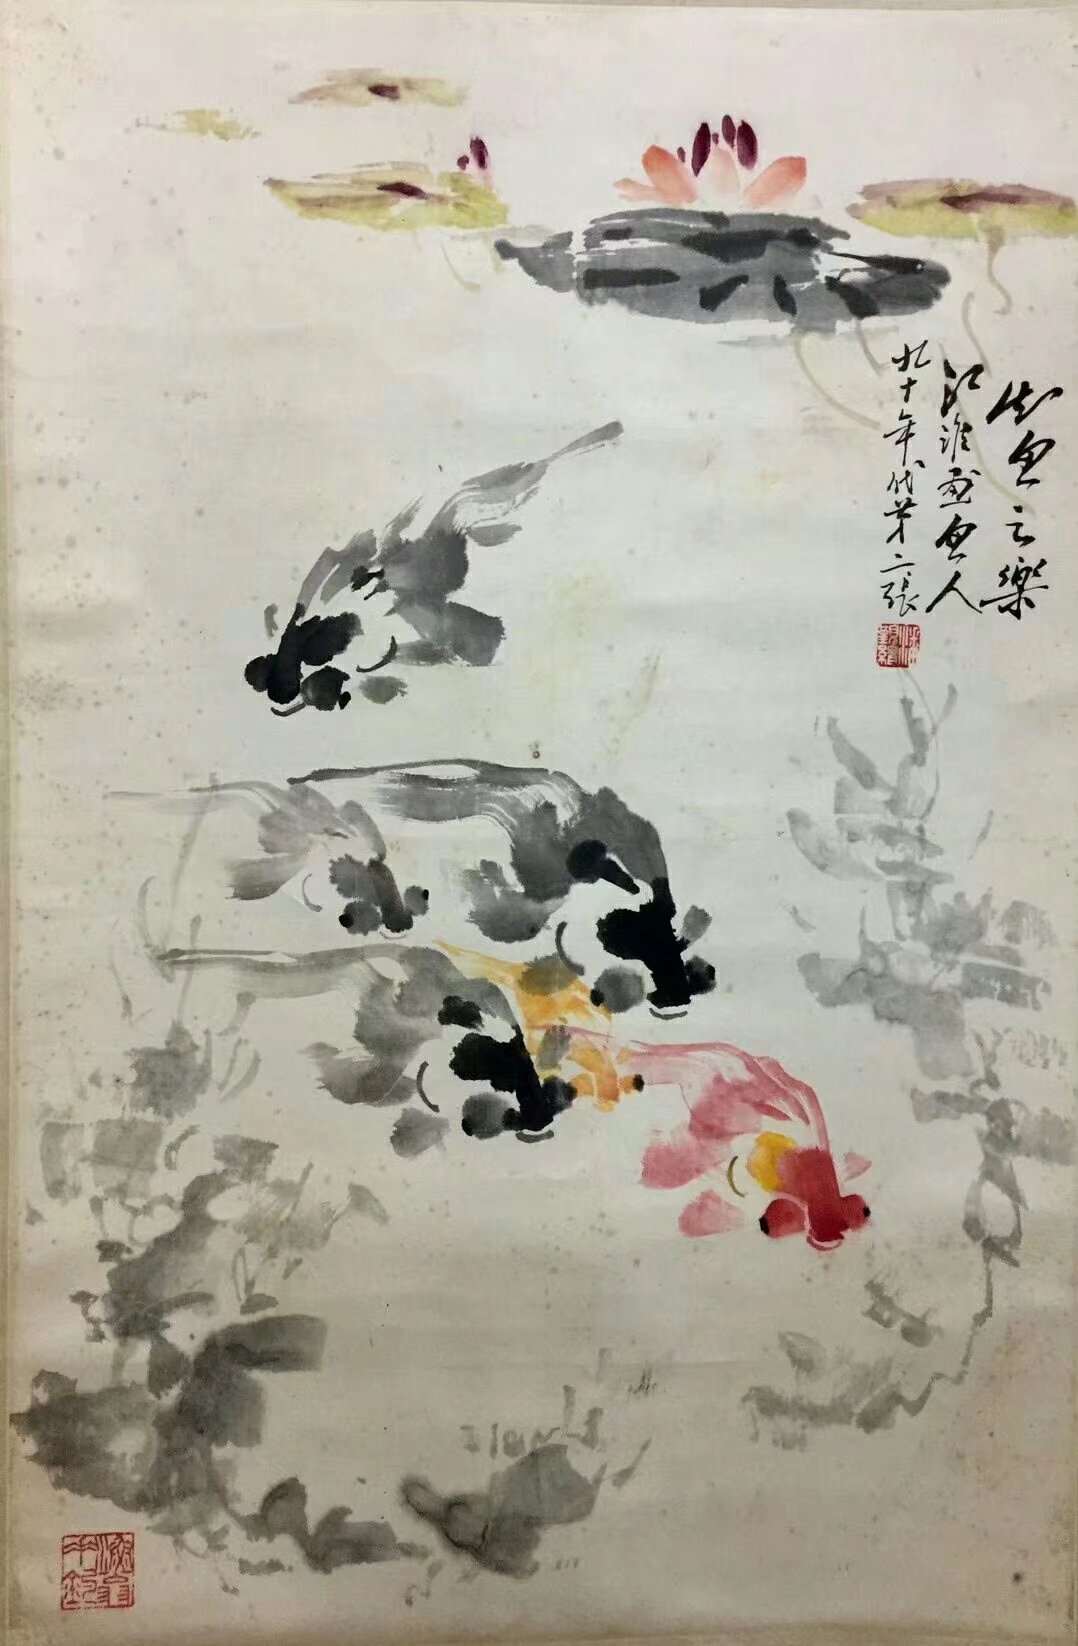 知鱼之樂
江淮画鱼人
九十年代第二張